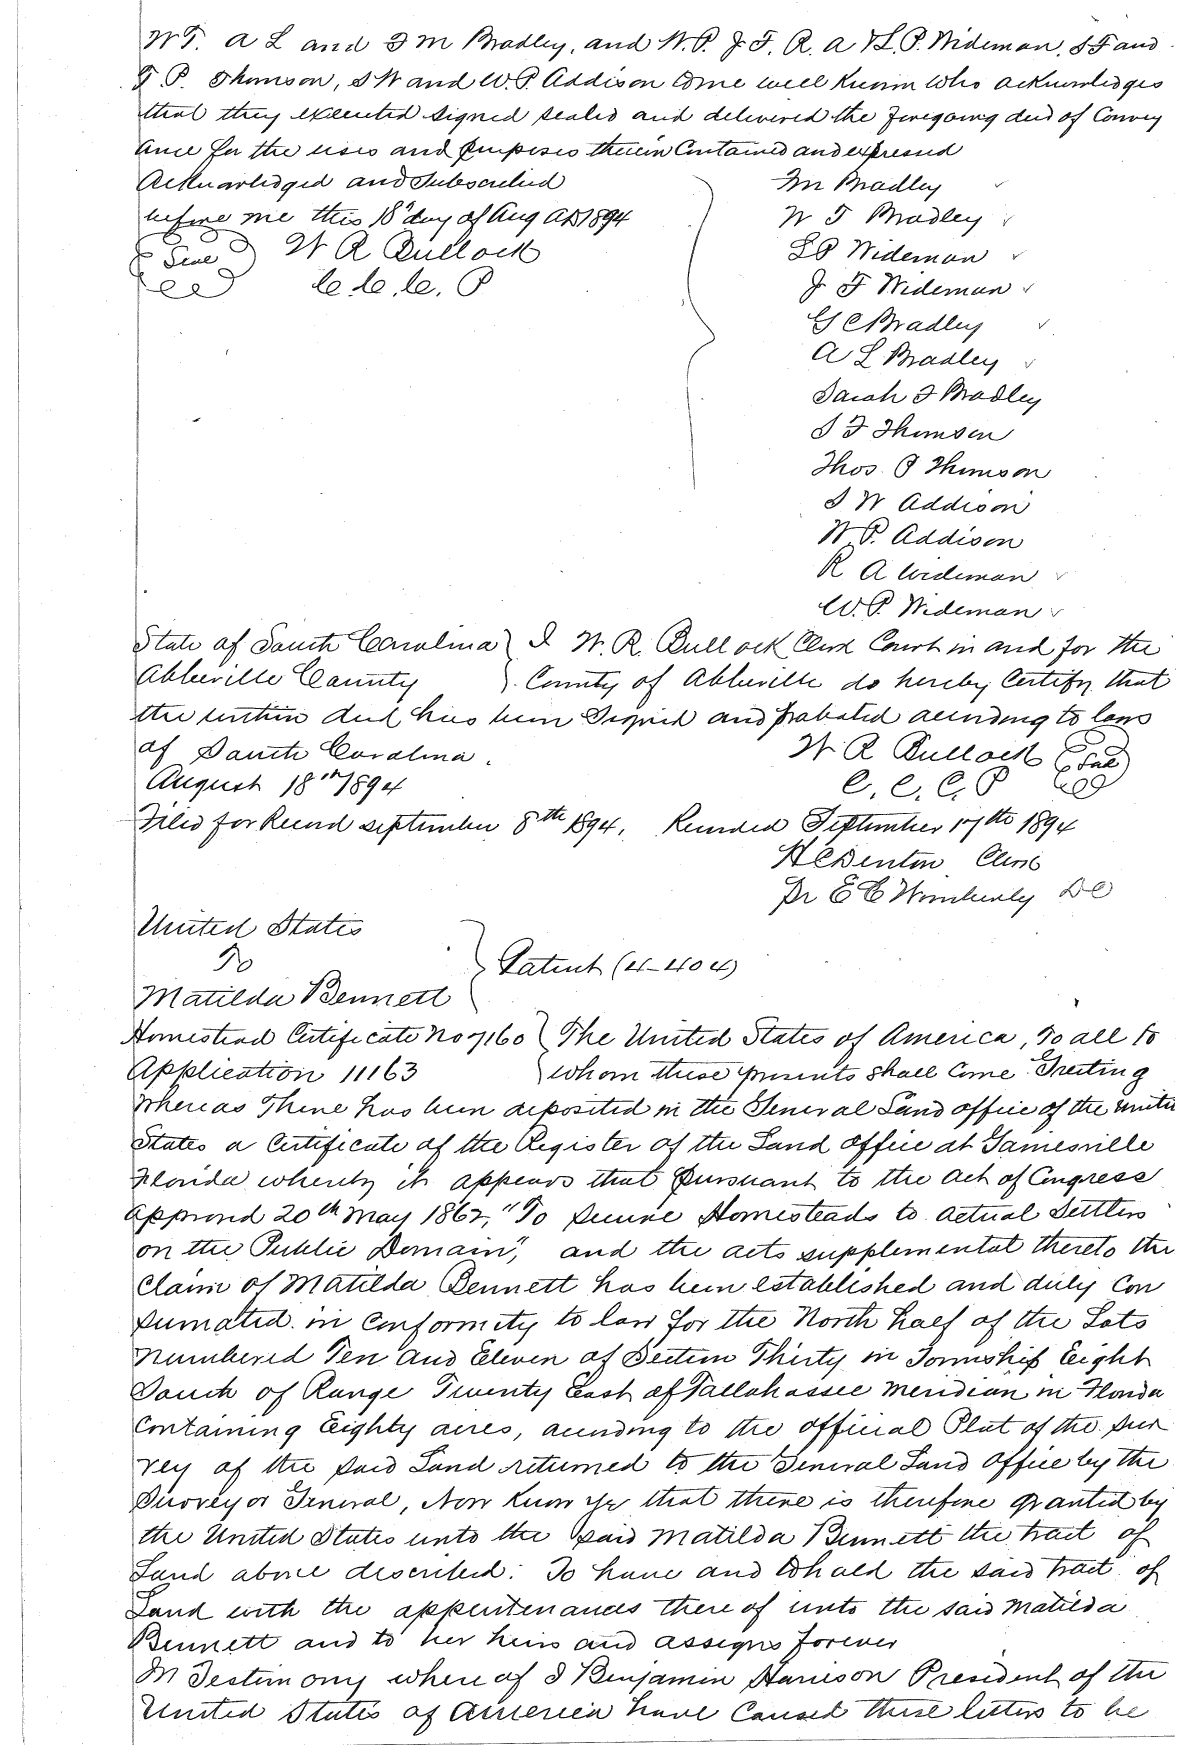 W T. A L and I M Bradley, and W. P. J F, R. A & L. P. Wideman, S F and
T P. Thomson, S W and W. P. Addison to me well known who acknowledges
that they executed signed sealed and delivered the foregoing deed of Convey
ance for the uses and purposes therein Contained and expressed
Acknowledged and Subscribed
before me this 18" day of Aug AD 1894
Seal W R Bullock
C. C. C. P
I M Bradley
W T Bradley
L P Wideman
J F Wideman
G C Bradley
A L Bradley
Sarah I Bradley
S F Thomson
Thos. P Thomson
S W Addison
W. P. Addison
R A Wideman
W. P. Wideman
State of South Carolina I W. R. Bullock Clerk Court in and for the
Abbeville County County of Abbeville do hereby Certify that
the within deed has been Signed and probated according to laws
of South Carolina.
August 18th 1894
W R Bullock Seal
C. C. C. P
Filed for Record September 8th 1894. Recorded September 17th 1894
H C Denton Clerk
Pr E C Wimberly D C
United States
To
Patent (4-404)
Matilda Bennett
Homestead Certificate No 7160 The United States of America, To all to
Application 11163 whom these presents shall Come Greeting
Whereas There has been deposited in the General Land office of the United
States a Certificate of the Register of the Land office at Gainesville
Florida whereby it appears that pursuant to the Act of Congress
approved 20th May 1862, "To Secure Homesteads to actual Settlers
on the Public Domain", and the acts supplemental thereto the
Claim of Matilda Bennett has been established and duly Con
sumated in Conformity to law for the North half of the Lots
numbered Ten and Eleven of Section Thirty in Township Eight
South of Range Twenty East of Tallahassee Meridian in Florida
Containing Eighty acres, according to the official Plat of the Sur
vey of the said Land returned to the General Land Office by the
Surveyor General, Now Know ye that there is therefore granted by
the United States unto the said Matilda Bennett the tract of
Land above described: To have and to hold the said tract of
Land with the appurtenances there of unto the said Matilda
Bennett and to her heirs and assigns forever
In Testimony where of I Benjamin Harrison President of the
United States of America have Caused these letters to be